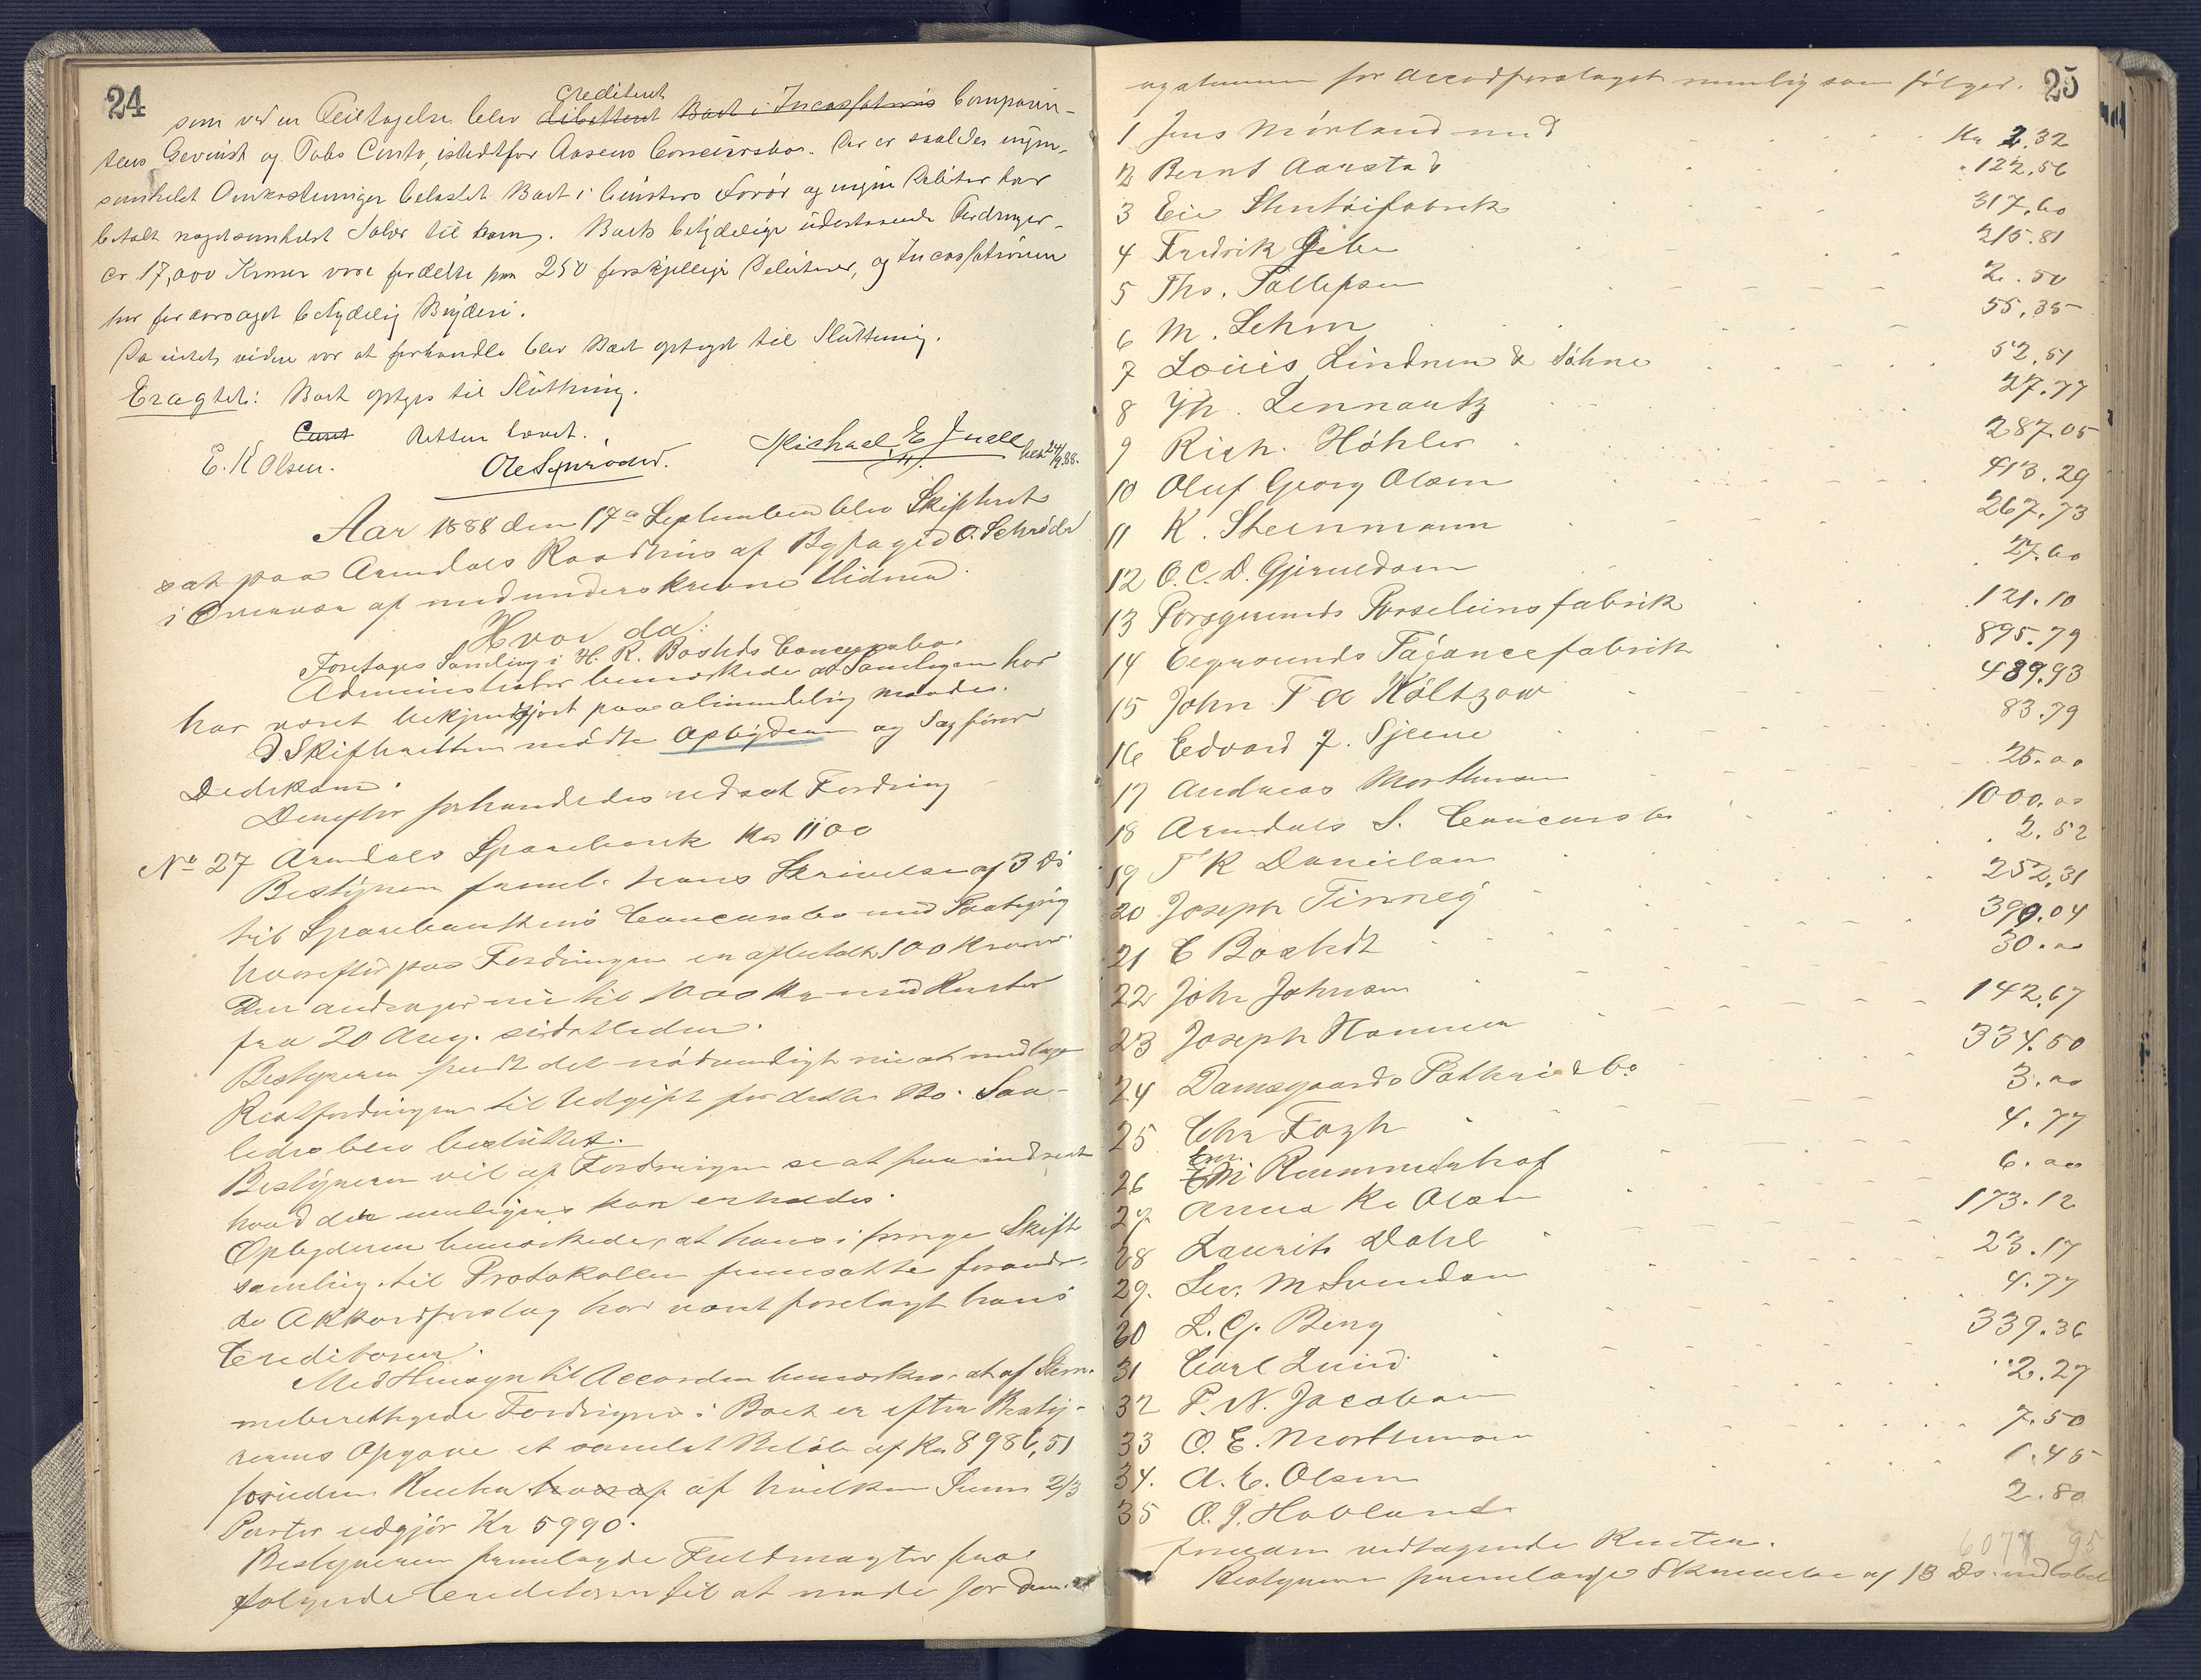 24
som ved en Feiltagelse blev debetteret Boet i Incassations Compagni-
crediteret
tens Gevinst og Tabs Conto, istedtfor Aasens Concursbo. Der er saaledes ingen-
somhelst Omkostninger belastet Boet i Civisters Forør og ingen Debitor har
betalt nogetsomhelst Salær til ham. Boets betydelige udestaaende Fordringer
cr 17,000 Kroner vare fordelte paa 250 forskjellige Debitorer, og Incassationen
har foraarsaget betydelig Bryderi.
Da intet videre var at forhandle blev Boet optaget til Slutning.
Eragtet: Boet optages til Slutning.
Curet Retten hævet.
E. K Olsen. Ole Schrøder. Michael E Juell
Aar 1888 den 17de September blev Skifteret
sat paa Arendals Raadhus af Byfoged O. Schrøder
i Overvær af medunderskrevne Vidner.
Hvor da:
Foretages Samling i H. R. Bosteds Concursbo.
Administrator bemærkede at Samlingen har
har været bekjendtgjort paa almindelig Maade.
I Skifteretten mødte Opbyderen og Sagfører
Dedekam.
Derefter forhandledes udsat Fordring
No 27 Arendals Sparebank Kr 1100
Bestyreren freml. hans Skrivelse af 3 ds
til Sparebankens Concursbo med Paategning
hvorefter paa Fordringen er afbetalt 100 Kroner
Den andrager nu til 1000 Kr med Renter
fra 20 Aug. sidstleden.
Bestyreren fandt det nødvendigt nu at medtage
Restfordringen til Udgift for dette Bo. Saa-
ledes blev besluttet.
Bestyreren vil af Fordringen se at faa inddrevet
hvad der muligens kan erholdes.
Opbyderen bemærkede, at hans i forrige Skifte-
samling til Protokollen fremsatte forandre-
de Akkordforslag har været forelagt hans
Creditorer.
Med Hensyn til Accorden bemærkes at af Stem-
meberettigede Fordringer i Boet er efter Besty-
rerens Opgave et samlet Beløb af Kr 8986,51
foruden Renter hvoraf af hvilken Sum 2/3
Parter udgjør Kr 5990.
Bestyreren fremlagde Fuldmagter fra
følgende Creditorer til at møde for dem
25
og stemme for Accordforslaget nemlig som følger.
1 Jens Mörland med Kr 2,32
2 Bernt Aarstad 122,56
3 Eie Stentöifabrik 317,60
4 Fredrik Gebe 215.81
5 Ths. Tallefsen 2.50
6 M. Lehm 55,35
7 Louis Lindner & Söhne 52,51
8 Jh. Lennartz 27.77
9 Rich. Höhler 287.05
10 Oluf Georg Olsen 413.29
11 K. Steinmann 267,73
12 O. C. D. Gjeruldsen 27.60
13 Porsgrunds Porselensfabrik 121.10
14 Egersunds Fajancefabrik 895.79
15 John F & Költzow 489.93
16 Edvard J. Sjeene 83.79
17 Andreas Morthensen 25.00
18 Arendals S. Concursbo 1000.00
19 T K Danielsen 2.52
20 Joseph Tinneg 252,31
21 C Bostedt 390.04
22 Johs Johnsen 30.00
23 Joseph Hammer 142,67
24 Damsgaards Pathrie & Co 334.50
25 Chr Fogh 3.00
26 Em. Rummelhof 4.77
27. Anna K. Olsen 6.00
28 Laurits Dahl 173.12
29. Sev. M. Svendsen 23.17
30 L. G. Berg 4.77
31 Carl Lund 339.36
32 P. N. Jacobsen 2.27
33 O. E. Morthensen 7.50
34. A. C. Olsen 1.45
35 O. J. Hovland 2.80
foruden vedtagende Renter. 6077 95
Bestyreren fremlagde Skrivelse af 13 Ds. indløbet